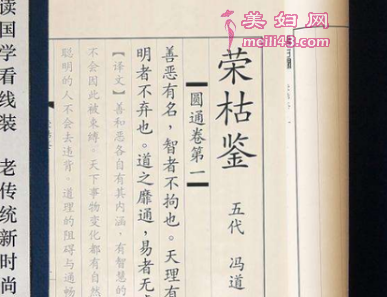 美妇网
meili43.com
荣枯鉴
五代 冯道
圆通卷第一
善恶有名，智者不拘也。天理有
明者不弃也。道之靡通，易者无
【译文】善和恶各自有其内涵，有智慧的
不会因此被束缚。天下事物变化都有自然
聪明的人不会去违背。道理的阻碍与通畅
读国学看线装 老传统新时尚